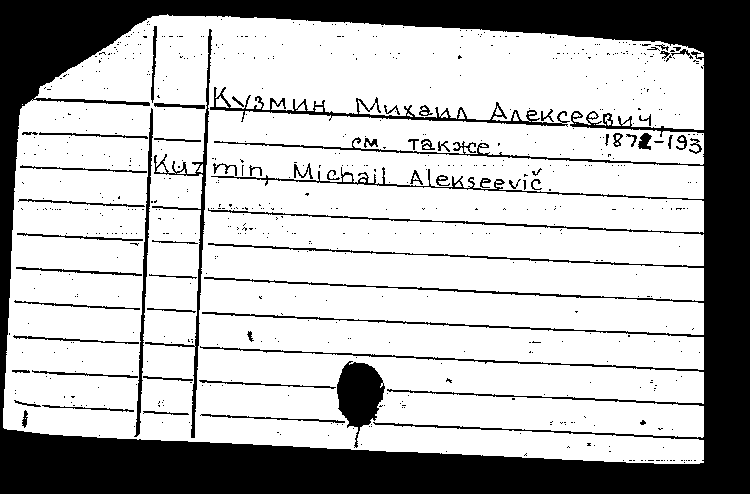 Кузмин, Михаил Алексеевич,
1872-193
см. также:
Kuzmin, Michail Alekseevič.